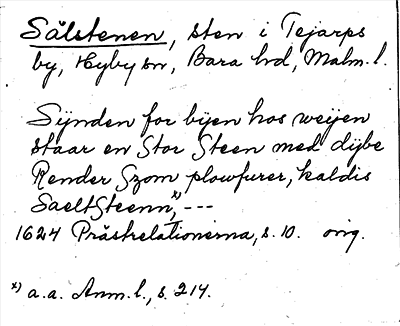 Sålstenen, sten i Tejarps
by, Hyby sn, Bara hd, Malm. l.
Synden for byen hos weyen
staar en Stor Steen med dybe
Render Szom plowfurer, kaldis
SaeltSteenn,x) ---
1624 Prästrelationerna, s. 10. orig.
x) a.a. Anm. l., s. 214.